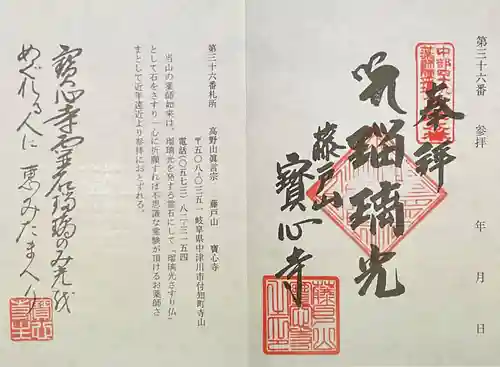 第三十六番 参拝 年 月 日
奉拝
瑠璃光
藤戸山
寶心寺
第三十六番札所 高野山眞言宗 藤戸山 寶心寺
〒五〇八-〇三五一 岐阜県中津川市付知町寺山
電話(〇五七三)八二-三一五四
当山の薬師如来は、瑠璃光を発する霊石にして「瑠璃光さすり仏」
として石をさすり一心に祈願すれば不思議な霊験が頂けるお薬師さ
まとして近年遠近より参拝におとずれる。
寶心寺霊石瑠璃のみ光を
めぐれる人に恵みたまへり